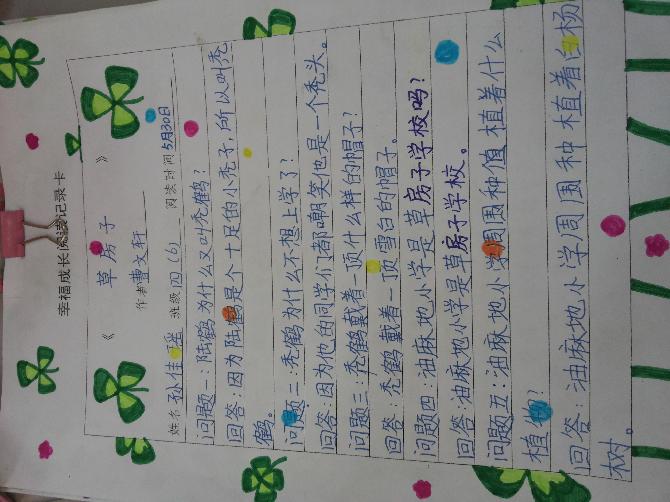 幸福成长阅读记录卡
《草房子》
作者曹文轩
姓名 孙佳瑶 班级 四(6) 阅读时间5月30日
问题一:陆鹤为什么又叫秃鹤?
回答:因为陆鹤是个十足的小秃子,所以叫秃
鹤。
问题二:秃鹤为什么不想上学了?
回答:因为他的同学们都嘲笑他是一个秃头。
问题三:秃鹤戴着一顶什么样的帽子?
回答:秃鹤戴着一顶雪白的帽子。
问题四:油麻地小学是草房子学校吗?
回答:油麻地小学是草房子学校。
问题五:油麻地小学周围种值植着什么
植物?
回答:油麻地小学周围种植着白杨
树。